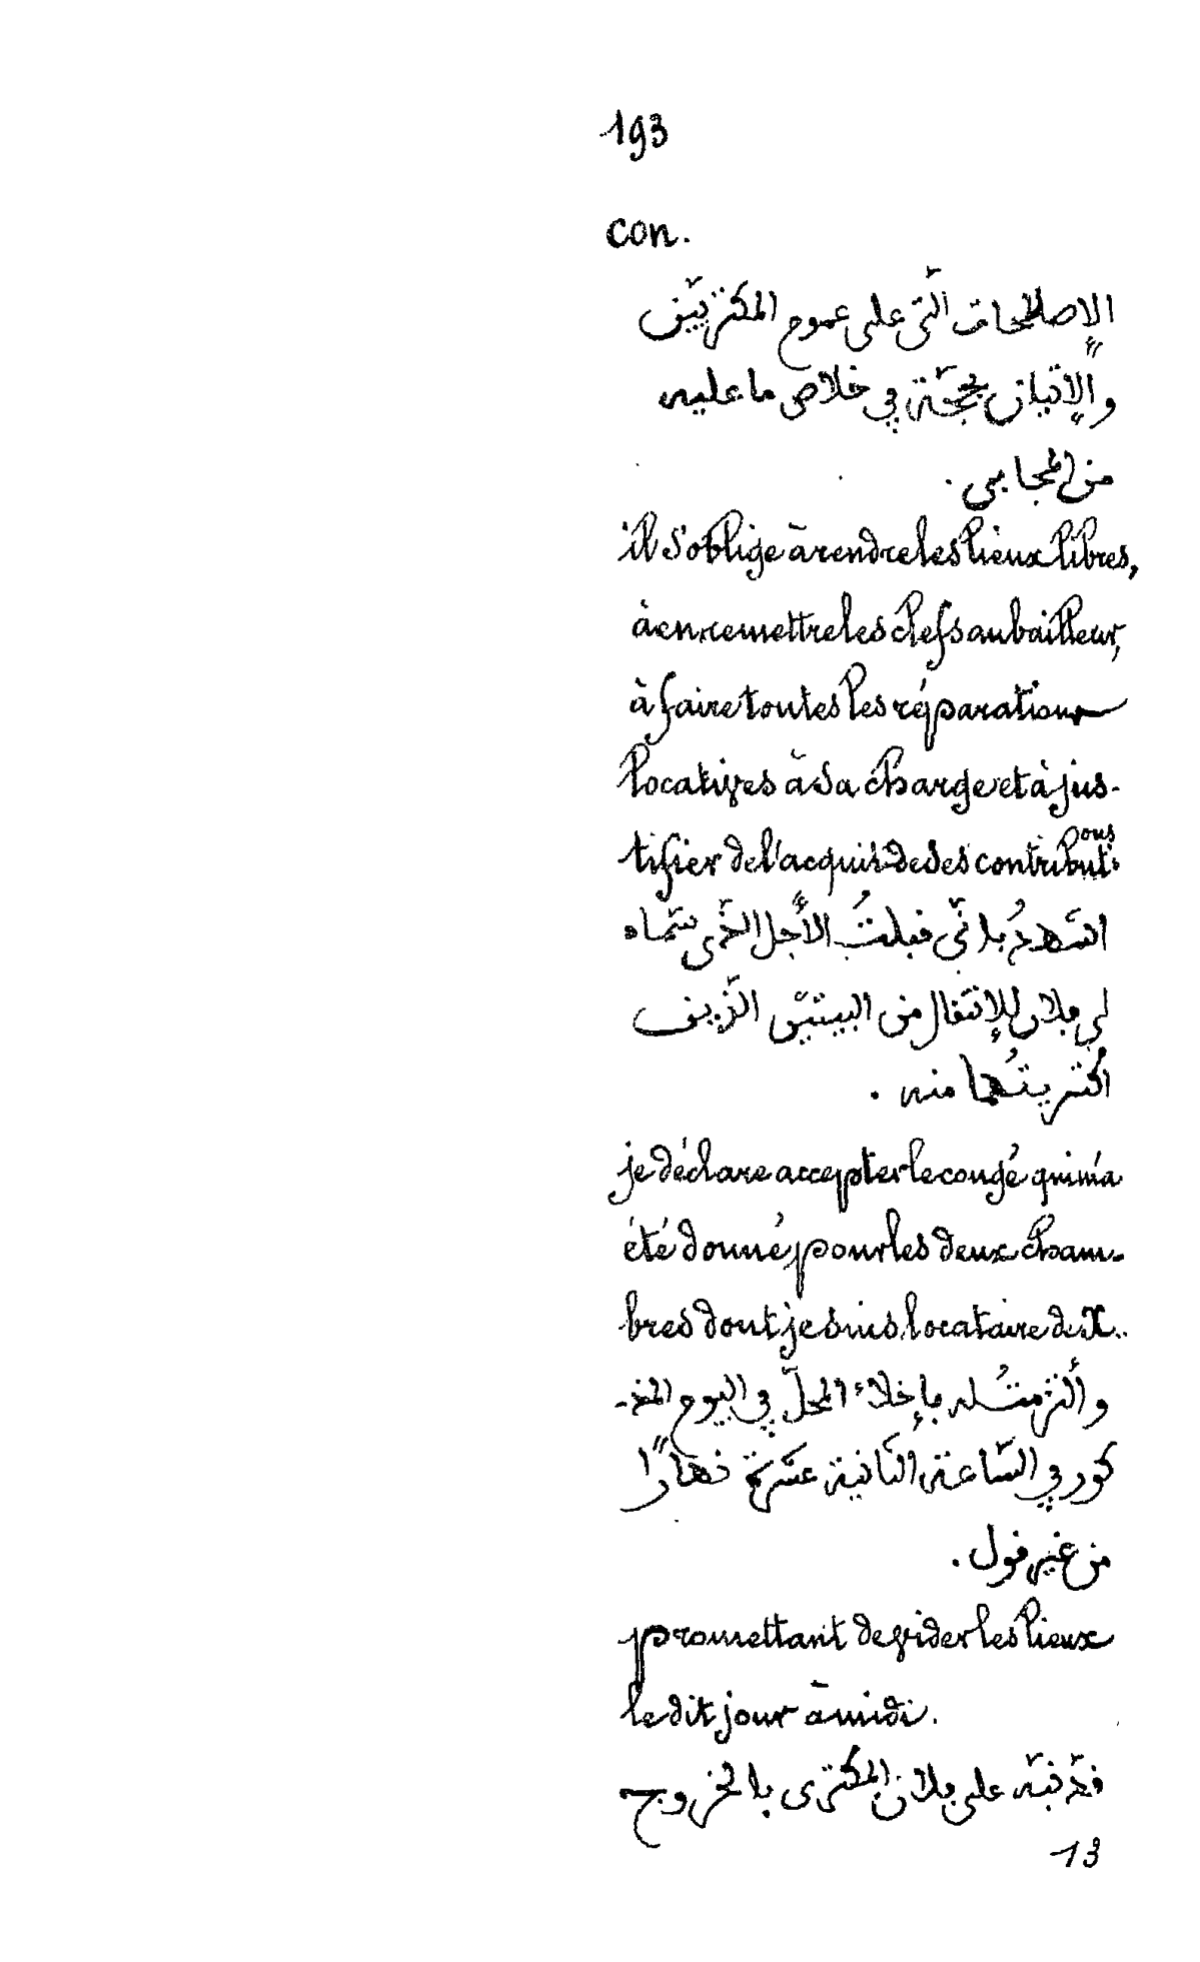 193
con.
الإصلاحات الّتي على عموم المكتريّين
والإتيان بحجّة في خلاص ما عليه
من المجابي.
il s'oblige à rendre les lieux libres,
à en remettre les clefs au bailleur,
à faire toutes les réparations
locatives à sa charge et à jus-
tifier de l'acquis de ses contributions
أشهدُ بانّي قبلتُ الأجل الّذي سمّاه
لي فلان للإنتقال من البيتيّن الّذين
أكتريتُهما منه.
je déclare accepter le congé qui m'a
été donné pour les deux cham-
bres dont je suis locataire de X..
وألتزمتُ له بإخلاء المحلّ في اليوم المذ-
كور في السّاعة الثّانية عشرة نهارًا
من غير قول.
promettant de vider les lieux
le dit jour à midi.
قد نبّه على فلان المكتري بالخروج
13